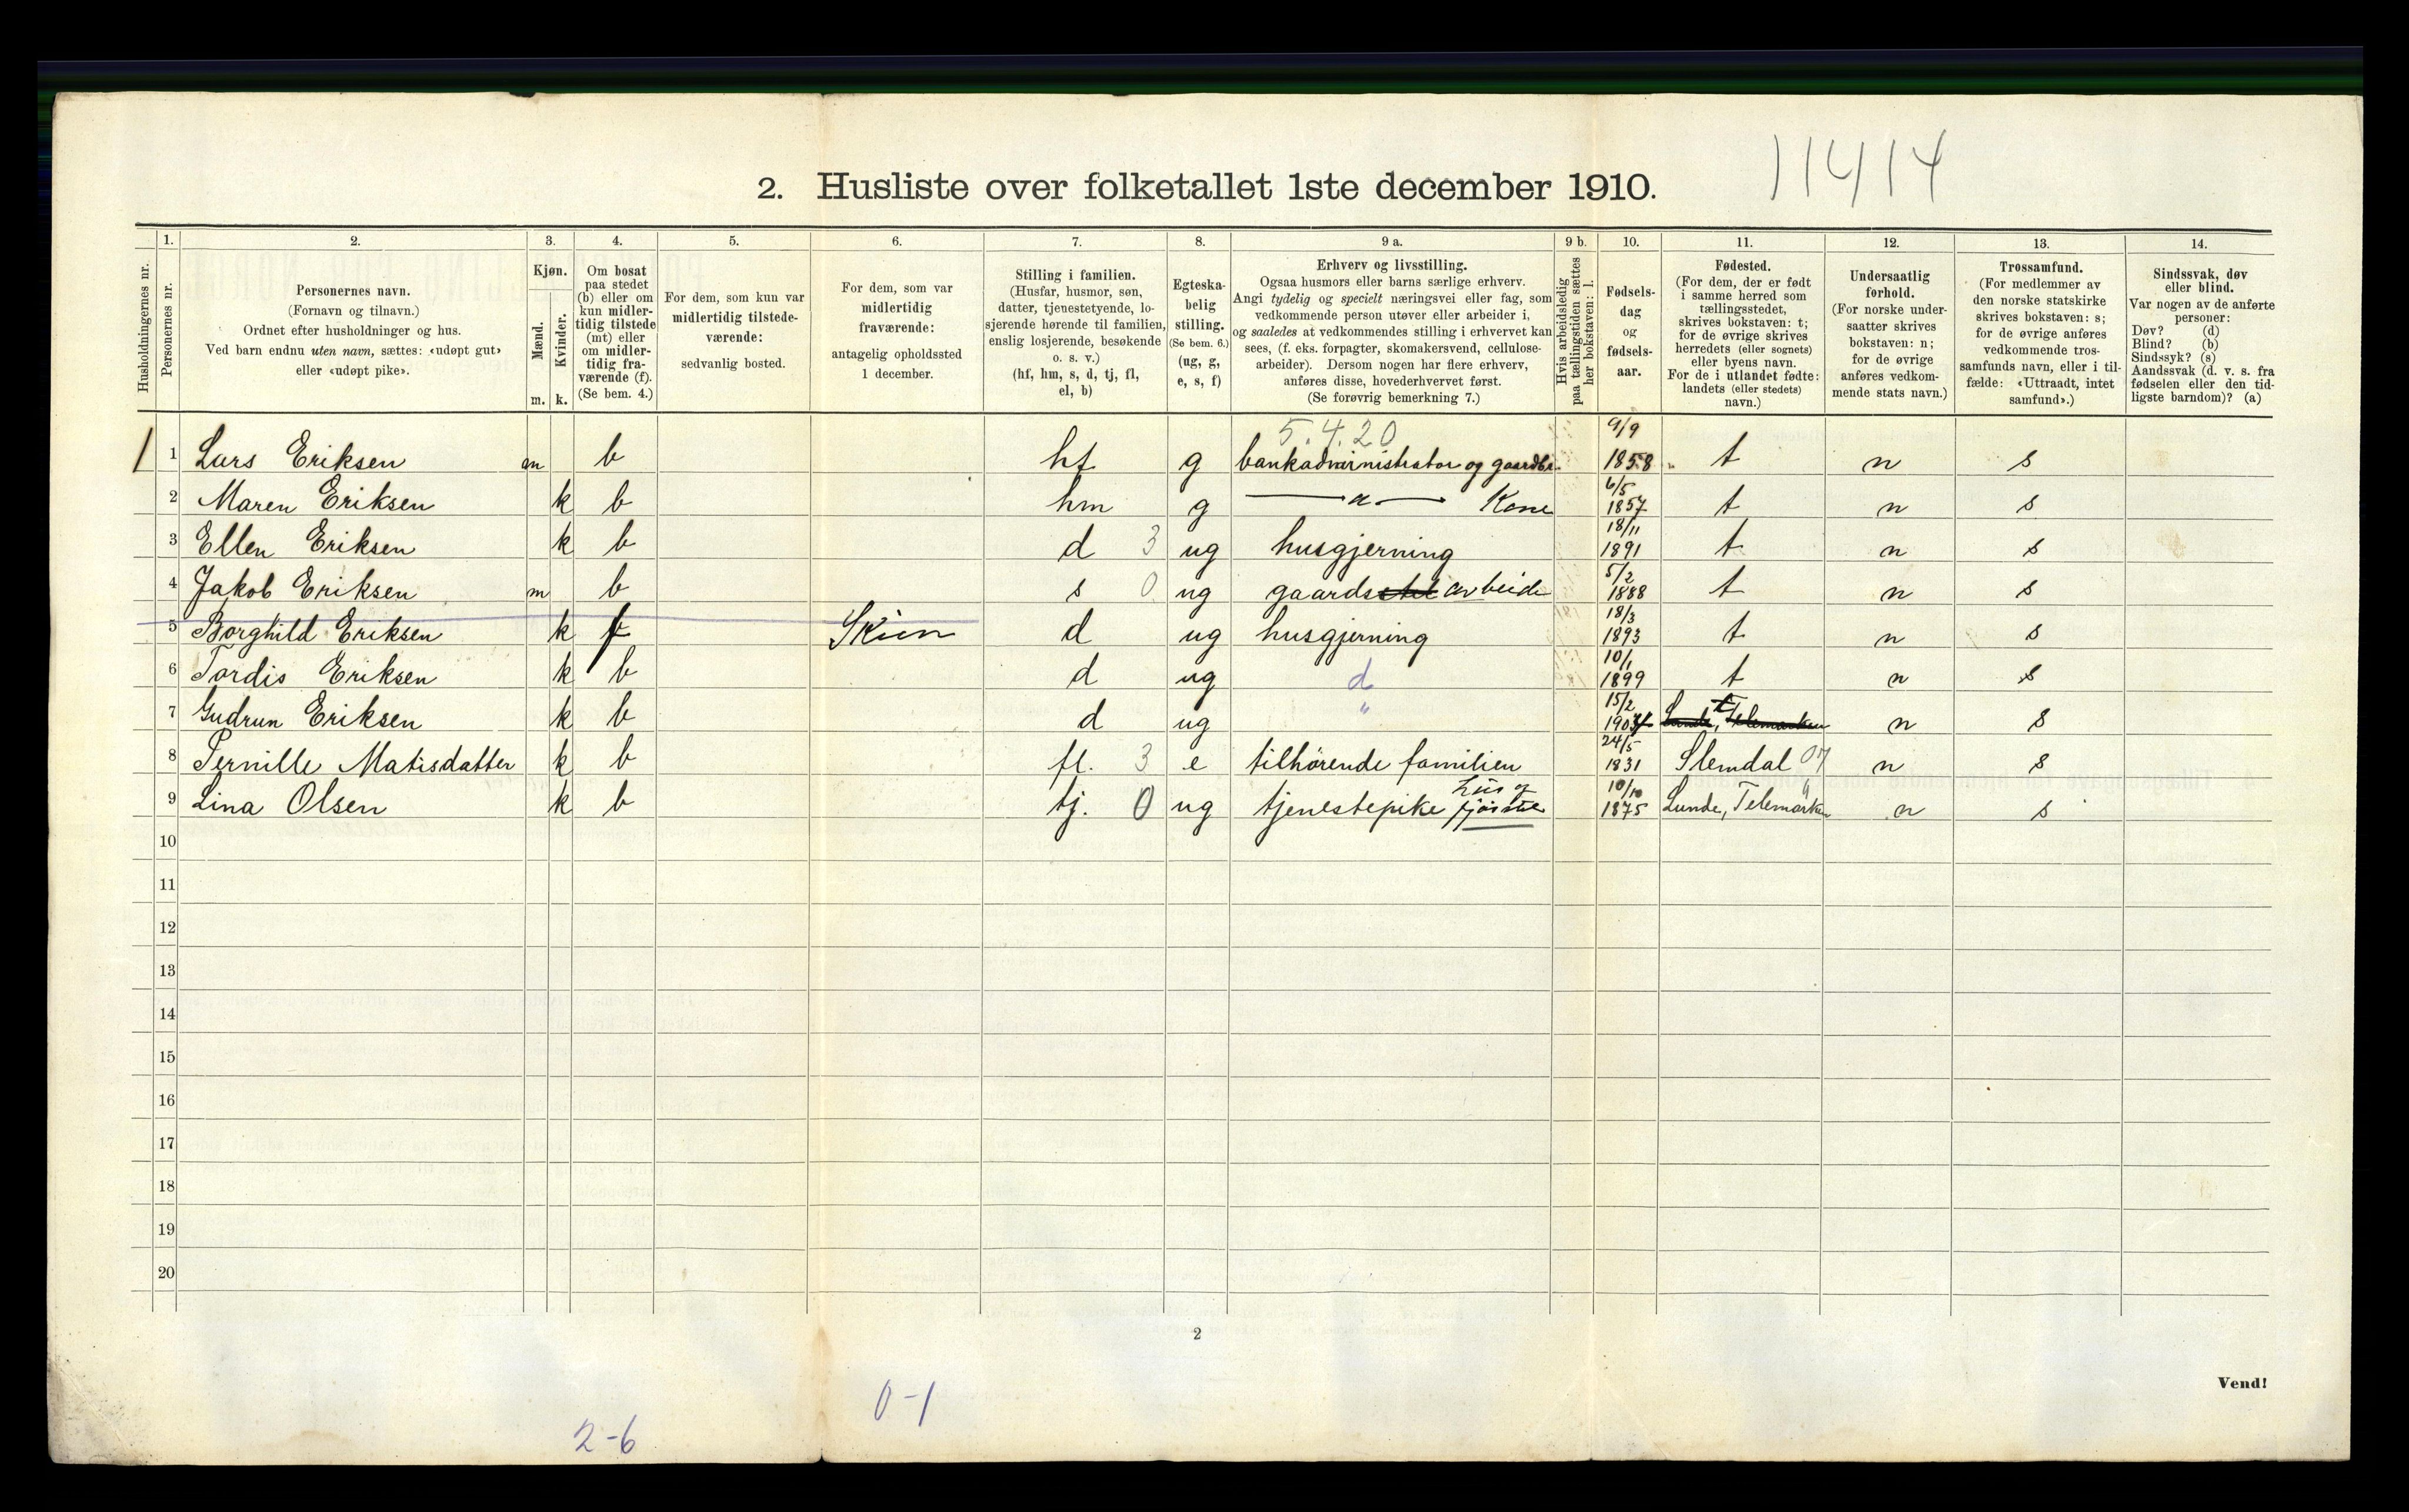 11414
2. Husliste over folketallet 1ste december 1910.
Husholdningernes nr.
1.
Personernes nr.
2.
Personernes navn.
(Fornavn og tilnavn.)
Ordnet efter husholdninger og hus.
Ved barn endnu uten navn, sættes: «udøpt gut»
eller «udøpt pike».
3.
Kjøn.
Mænd.
Kvinder.
m. k.
4.
Om bosat
paa stedet
(b) eller om
kun midler-
tidig tilstede
(mt) eller
om midler-
tidig fra-
værende (f).
(Se bem. 4.)
5.
For dem, som kun var
midlertidig tilstede-
værende:
sedvanlig bosted.
6.
For dem, som var
midlertidig
fraværende:
antagelig opholdssted
1 december.
7.
Stilling i familien.
(Husfar, husmor, søn,
datter, tjenestetyende, lo-
sjerende hørende til familien,
enslig losjerende, besøkende
o. s. v.)
(hf, hm, s, d, tj, fl,
el, b)
8.
Egteska-
belig
stilling.
(Se bem. 6.)
(ug, g,
e, s, f)
9 a.
Erhverv og livsstilling.
Ogsaa husmors eller barns særlige erhverv.
Angi tydelig og specielt næringsvei eller fag, som
vedkommende person utøver eller arbeider i,
og saaledes at vedkommendes stilling i erhvervet kan
sees, (f. eks. forpagter, skomakersvend, cellulose-
arbeider). Dersom nogen har flere erhverv,
anføres disse, hovederhvervet først.
(Se forøvrig bemerkning 7.)
9 b.
Hvis arbeidsledig
paa tællingstiden sættes
her bokstaven: l.
10.
Fødsels-
dag
og
fødsels-
aar.
11.
Fødested.
(For dem, der er født
i samme herred som
tællingsstedet,
skrives bokstaven: t;
for de øvrige skrives
herredets (eller sognets)
eller byens navn.
For de i utlandet fødte:
landets (eller stedets)
navn.)
12.
Undersaatlig
forhold.
(For norske under-
saatter skrives
bokstaven: n;
for de øvrige
anføres vedkom-
mende stats navn.)
13.
Trossamfund.
(For medlemmer av
den norske statskirke
skrives bokstaven: s;
for de øvrige anføres
vedkommende tros-
samfunds navn, eller i til-
fælde: «Uttraadt, intet
samfund».)
14.
Sindssvak, døv
eller blind.
Var nogen av de anførte
personer:
Døv? (d)
Blind? (b)
Sindssyk? (s)
Aandssvak (d. v. s. fra
fødselen eller den tid-
ligste barndom)? (a)
5.4.20
1 1 Lars Eriksen m b hf g bankadministrator og gaardbr. 9/9 1858 t n s
2 Maren Eriksen k b hm g —"— Kone 6/5 1857 t n s
3 Ellen Eriksen k b d 3 ug husgjerning 18/11 1891 t n s
4 Jakob Eriksen m b s 0 ug gaards arbeide 5/2 1888 t n s
5 Borghild Eriksen k f Skien d ug husgjerning 18/3 1893 t n s
6 Tordis Eriksen k b d ug d 10/1 1899 t n s
7 Gudrun Eriksen k b d ug " 15/2 190 Lunde, Telemarken t n s
8 Pernille Matisdatter k b fl. 3 e tilhørende familien 24/5 1831 Slemdal 07 n s
9 Lina Olsen k b tj. 0 ug tjenestepike hus og fjøsstel 10/10 1875 Lunde, Telemarken n s
10
11
12
13
14
15
16
17
18
19
20
2
Vend!
0-1
2-6